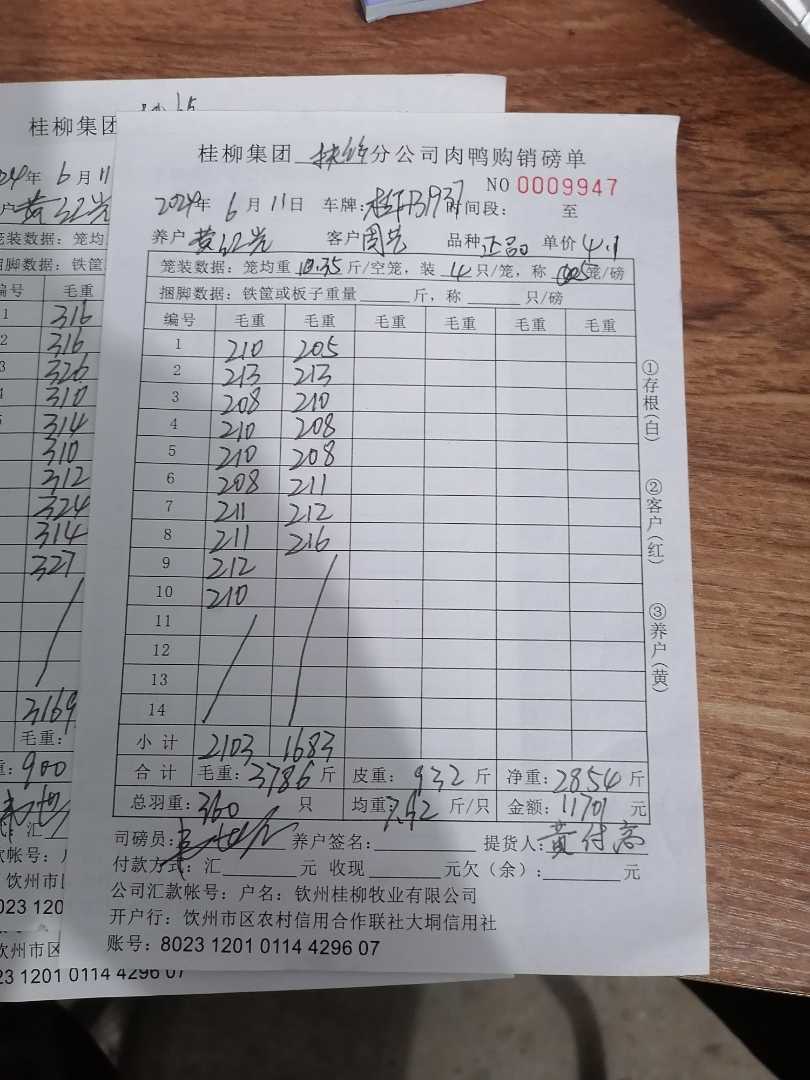 桂柳集团
2024年 6月11
户黄红光
笼装数据：笼均
捆脚数据：铁筐
编号 毛重
1 316
2 316
3 326
4 310
5 314
310
312
324
314
327
3169
毛重：
重：900
汇
钦州市
023 120
钦州市区
23 1201 0114 4296 07
桂柳集团 分公司肉鸭购销磅单
NO 0009947
2024年 6月11日 车牌： 时间段： 至
养户 黄红光 客户 周艺 品种 正品 单价 4.1
笼装数据：笼均重 10.35 斤/空笼，装 4 只/笼，称 5笼/磅
捆脚数据：铁筐或板子重量 斤，称 只/磅
编号 毛重 毛重 毛重 毛重 毛重 毛重
1 210 205
2 213 213
3 208 210
4 210 208
5 210 208
6 208 211
7 211 212
8 211 216
9 212
10 210
11
12
13
14
小计 2103 1683
合计 毛重：3786 斤 皮重：932 斤 净重：2854 斤
总羽重：360 只 均重：7.92 斤/只 金额：11701 元
司磅员： 养户签名： 提货人：黄付高
付款方式：汇 元 收现 元欠（余）： 元
公司汇款帐号：户名：钦州桂柳牧业有限公司
开户行：饮州市区农村信用合作联社大垌信用社
账号：8023 1201 0114 4296 07
①存根（白）
②客户（红）
③养户（黄）